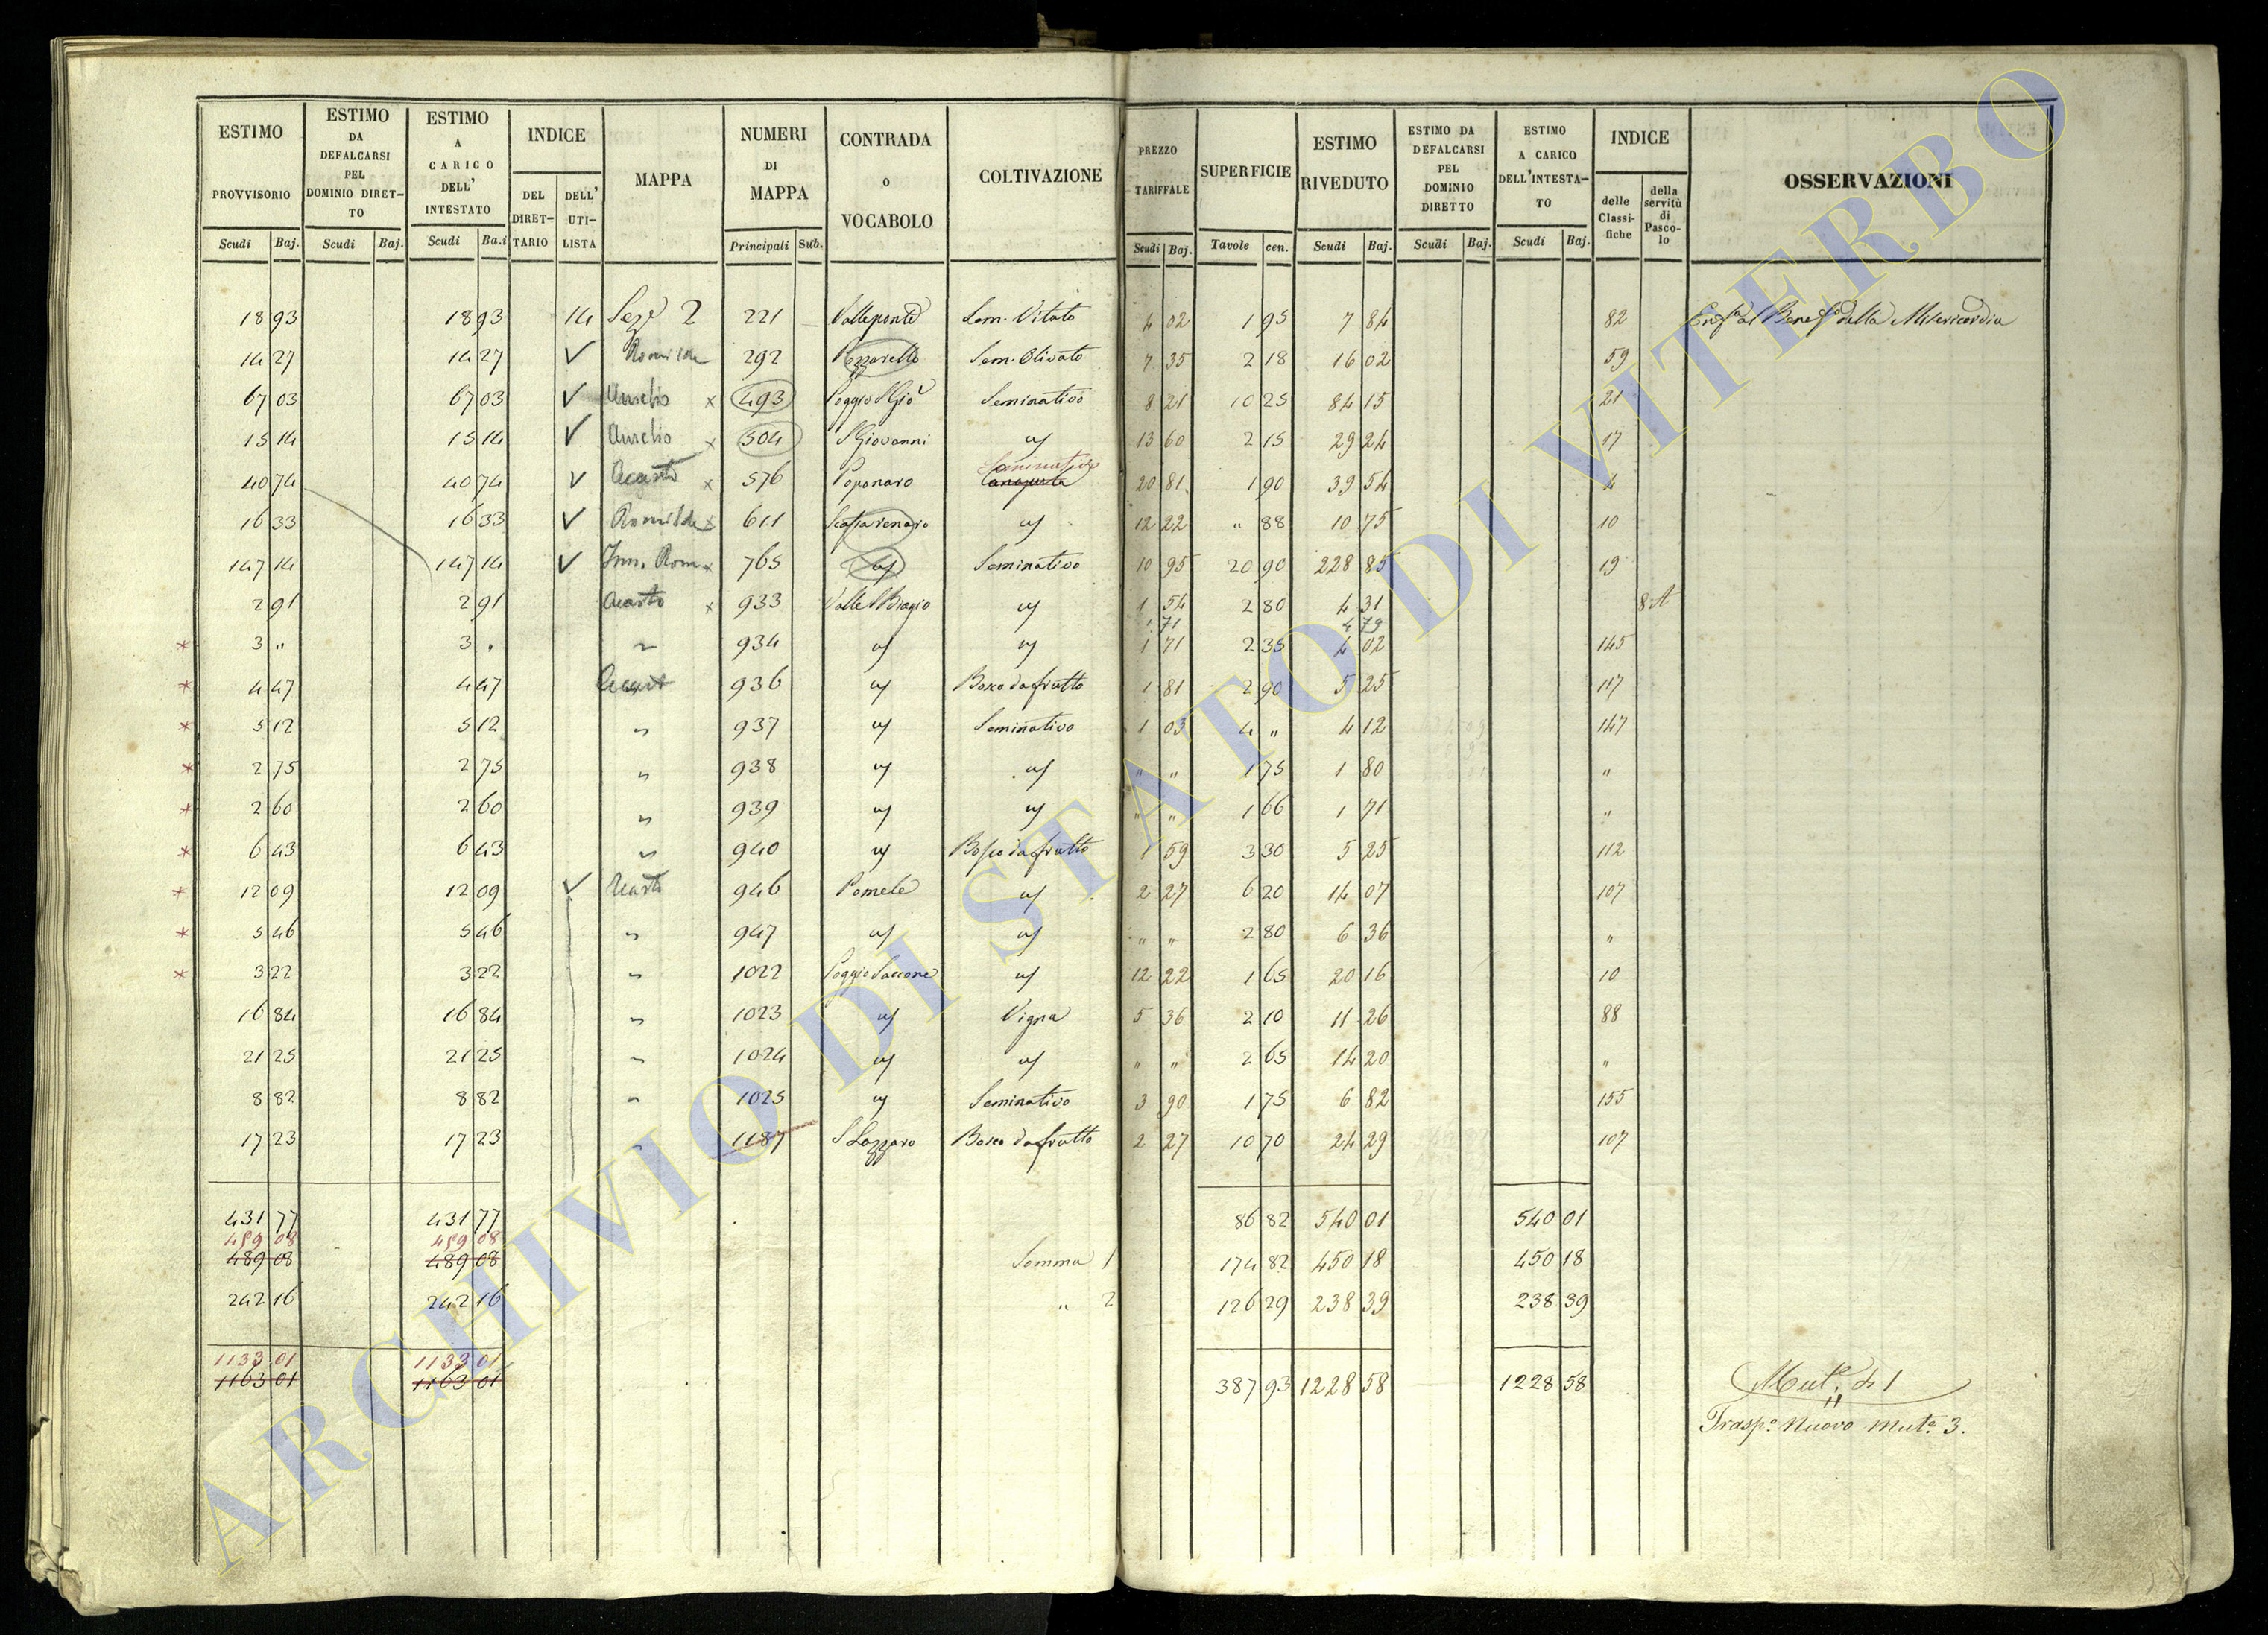 ESTIMO PROVVISORIO Scudi Baj. | ESTIMO DA DEFALCARSI PEL DOMINIO DIRETTO Scudi Baj. | ESTIMO A CARICO DELL' INTESTATO Scudi Ba.i | INDICE DEL DIRETTARIO DELL' UTILISTA | MAPPA | NUMERI DI MAPPA Principali Sub. | CONTRADA o VOCABOLO | COLTIVAZIONE | PREZZO TARIFFALE Scudi Baj. | SUPERFICIE Tavole cen. | ESTIMO RIVEDUTO Scudi Baj. | ESTIMO DA DEFALCARSI PEL DOMINIO DIRETTO Scudi Baj. | ESTIMO A CARICO DELL'INTESTATO Scudi Baj. | INDICE delle Classifiche della servitù di Pascolo | OSSERVAZIONI
18 93 18 93 14 Sez.e 2 221 Valleponte Sem. Vitato 4 02 1 95 7 84 82 della Misericordia
14 27 14 27 ✓ Romilde 292 Pozzarello Sem. Olivato 7 35 2 18 16 02 59
67 03 67 03 ✓ Aurelio x 493 Poggio S Gio Seminativo 8 21 10 25 84 15 21
15 14 15 14 ✓ Aurelio x 504 S Giovanni 13 60 2 15 29 24 17
40 74 40 74 ✓ x 576 Poponaro Seminativo 20 81 1 90 39 54 4
16 33 16 33 ✓ Romilde x 611 12 22 " 88 10 75 10
147 14 147 14 ✓ x 765 Seminativo 10 95 20 90 228 85 19
2 91 2 91 x 933 Valle S Biagio 1 54 2 80 4 31 8 A
1 71 4 79
* 3 " 3 " 934 1 71 2 35 4 02 145
* 4 47 4 47 936 Bosco da frutto 1 81 2 90 5 25 117
* 5 12 5 12 937 Seminativo 1 03 4 " 4 12 147
* 2 75 2 75 938 " " 1 75 1 80 "
* 2 60 2 60 939 " " 1 66 1 71 "
* 6 43 6 43 940 Bosco da frutto 1 59 3 30 5 25 112
* 12 09 12 09 ✓ 946 Pomele 2 27 6 20 14 07 107
* 5 46 5 46 947 " " 2 80 6 36 "
* 3 22 3 22 1022 Poggio Saccone 12 22 1 65 20 16 10
16 84 16 84 1023 Vigna 5 36 2 10 11 26 88
21 25 21 25 1024 " " 2 65 14 20 "
8 82 8 82 1025 Seminativo 3 90 1 75 6 82 155
17 23 17 23 1187 S Lazzaro Bosco da frutto 2 27 10 70 24 29 107
431 77 431 77 86 82 540 01 540 01
459 08 459 08
489 08 489 08 Somma 1 174 82 450 18 450 18
242 16 242 16 " 2 126 29 238 39 238 39
1133 01 1133 01
1163 01 1163 01 387 93 1228 58 1228 58
Trasp.o Nuovo Mut.e 3.
ARCHIVIO DI STATO DI VITERBO